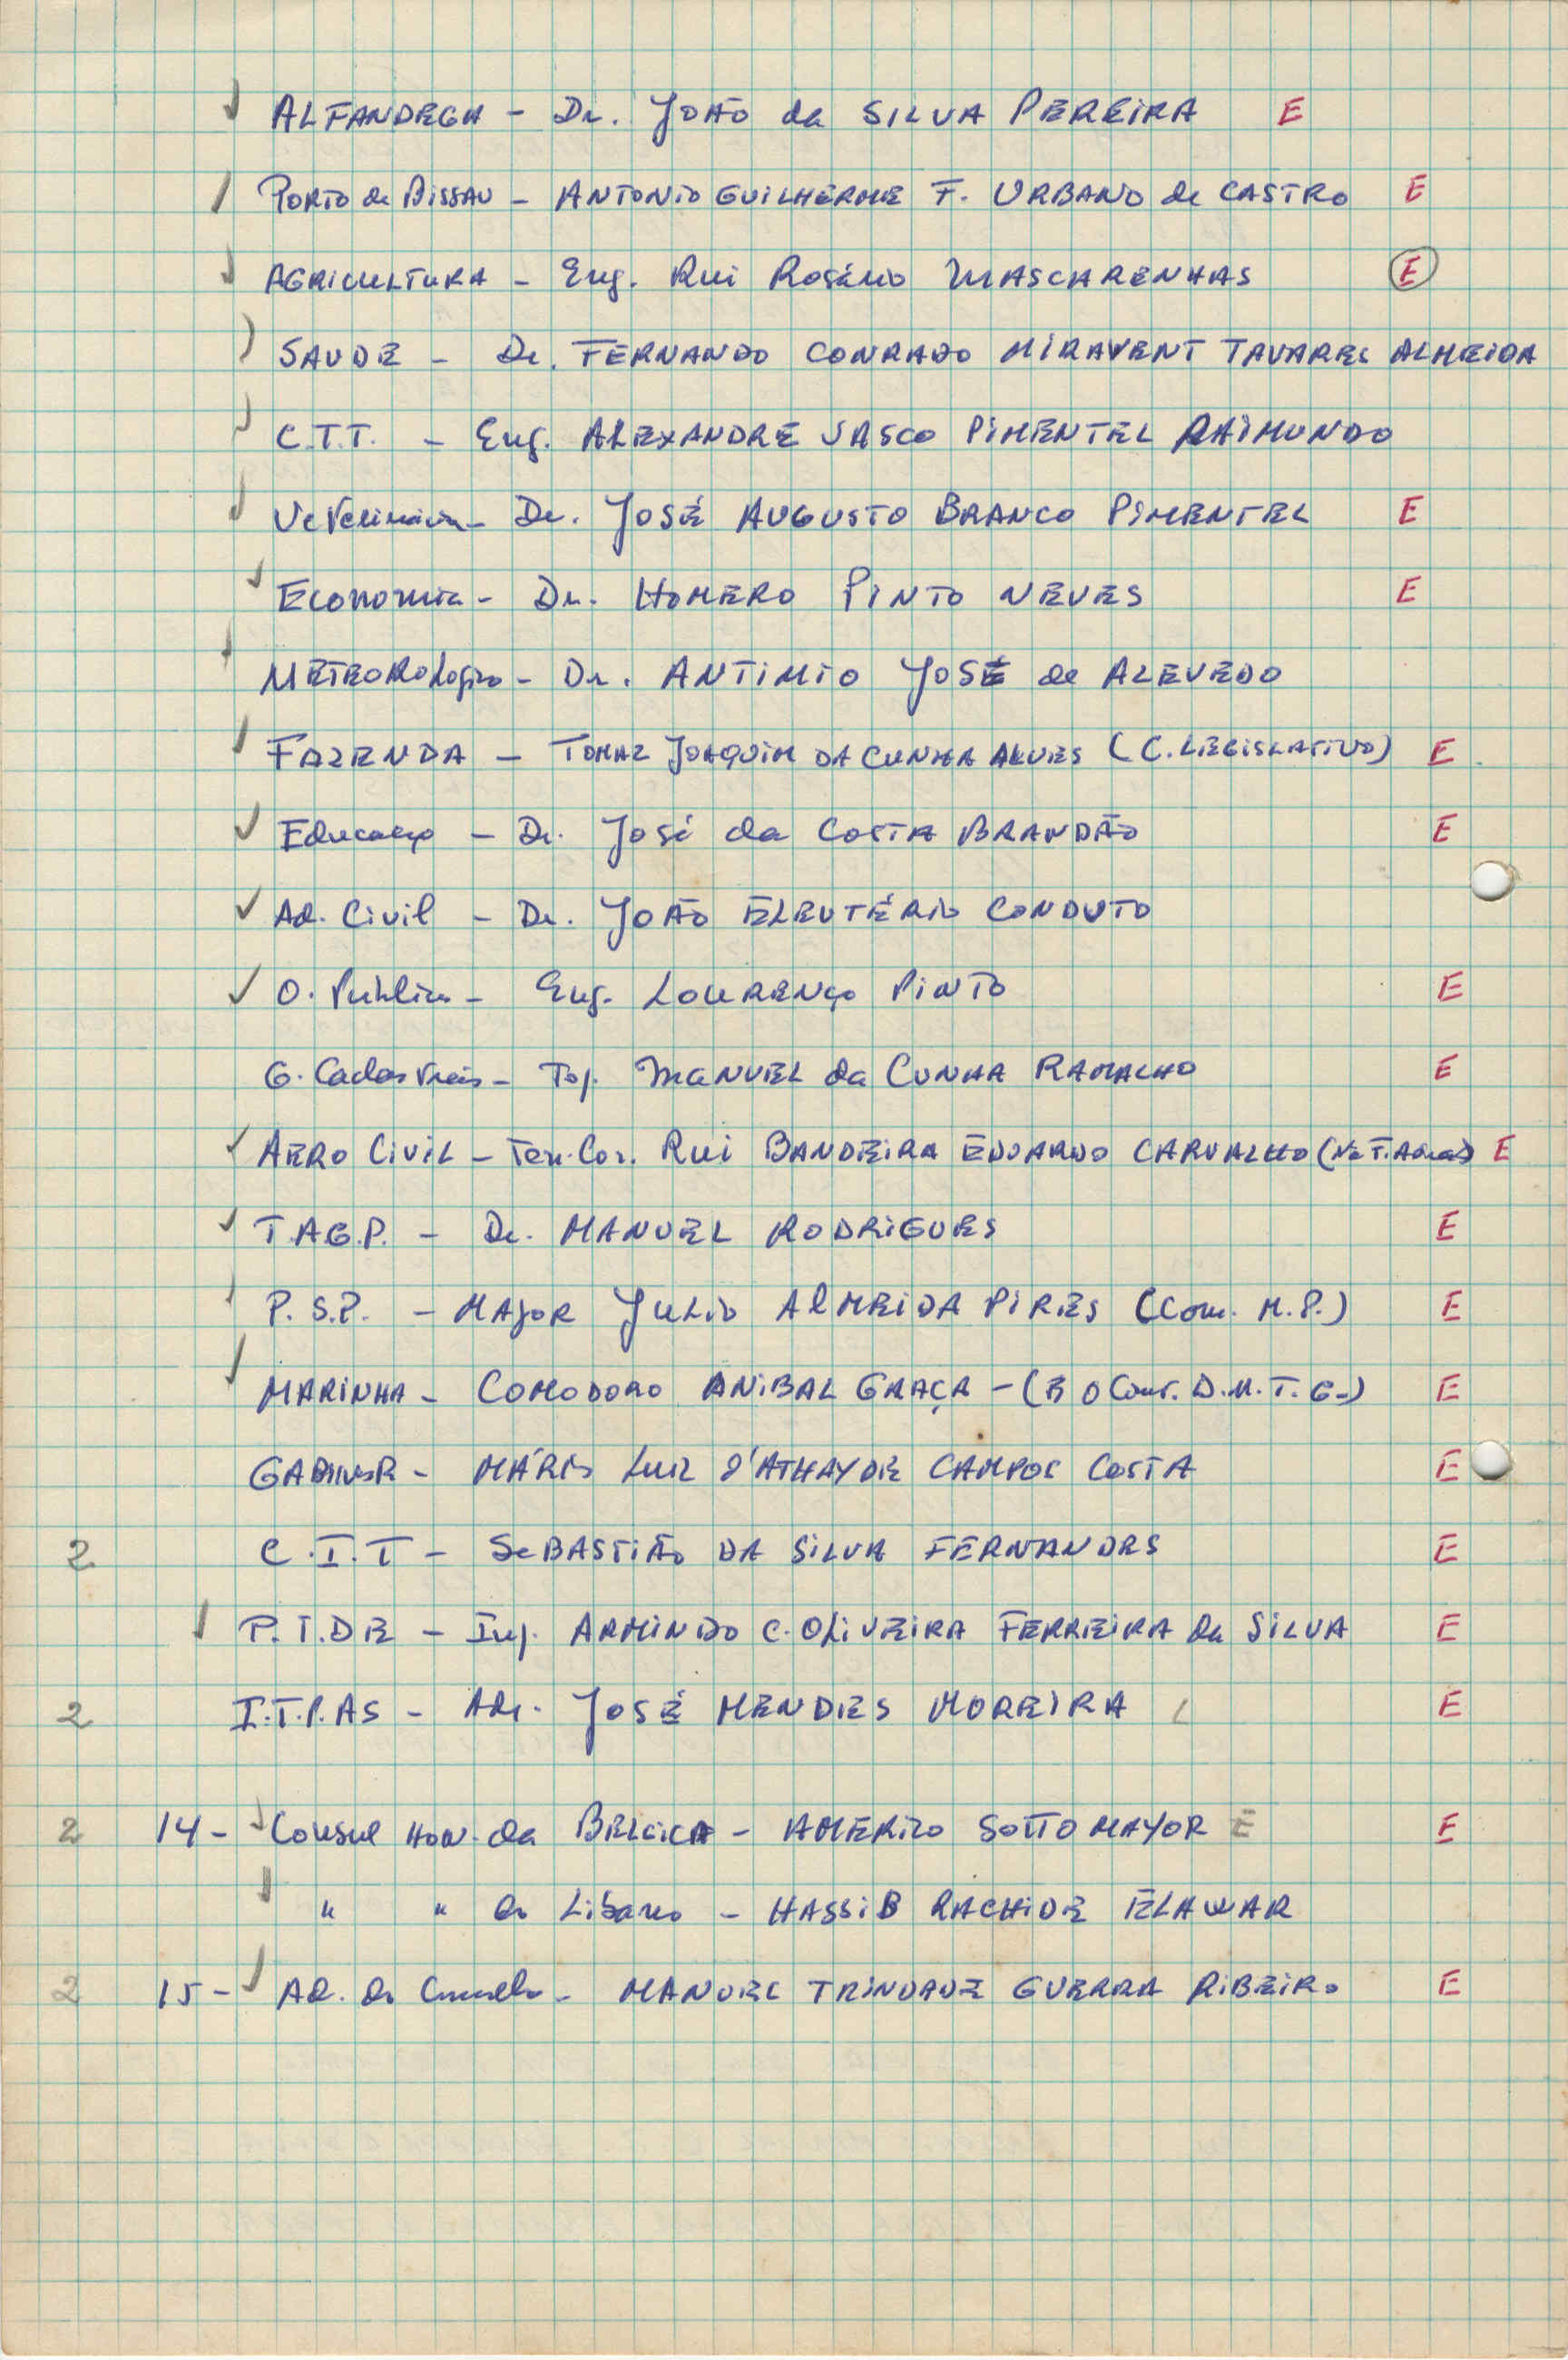 ✓ ALFANDEGA - Dr. JOÃO da SILVA PEREIRA E
/ PORTO de BISSAU - ANTONIO GUILHERME F. URBANO de CASTRO E
✓ AGRICULTURA - Eng. Rui Rosário MASCARENHAS E
SAUDE - Dr. FERNANDO CONRADO MIRAVENT TAVARES ALMEIDA
C.T.T. - Eng. ALEXANDRE VASCO PIMENTEL RAIMUNDO
✓ Veterinária - Dr. JOSÉ AUGUSTO BRANCO PIMENTEL E
✓ Economia - Dr. HOMERO PINTO NEVES E
METEOROLogico - Dr. ANTIMIO JOSÉ de AZEVEDO
✓ FAZENDA - TOMAZ JOAQUIM DA CUNHA ALVES (C. LEGISLATIVO) E
✓ Educação - Dr. José da COSTA BRANDÃO E
✓ Ad. Civil - Dr. JOÃO ELEUTÉRIO CONDUTO
✓ O. Publicas - Eng. LOURENÇO PINTO E
G. Cadastrais - Top. MANUEL da CUNHA RAMALHO E
✓ AERO CIVIL - Ten. Cor. Rui BANDEIRA EDUARDO CARVALHO E
✓ T.A.G.P. - Dr. MANUEL RODRIGUES E
P.S.P. - MAJOR JULIO ALMEIDA PIRES (Com. M.P.) E
✓ MARINHA - COMODORO ANIBAL GRAÇA - D.M.T.G.) E
MÁRIO LUIZ d'ATHAYDE CAMPOS COSTA E
2 C.I.T - SEBASTIÃO DA SILVA FERNANDES E
✓ P.I.DE - Insp. ARMINDO C. OLIVEIRA FERREIRA da SILVA E
2 I.T.P.AS - Adm. JOSÉ MENDES MOREIRA E
2 14 - ✓ Consul HON. da BELGICA - AMERICO SOTTO MAYOR E E
✓ " " do Libano - HASSIB RACHIDE ELAWAR
2 15 - ✓ Ad. do Concelho - MANUEL TRINDADE GUERRA RIBEIRO E